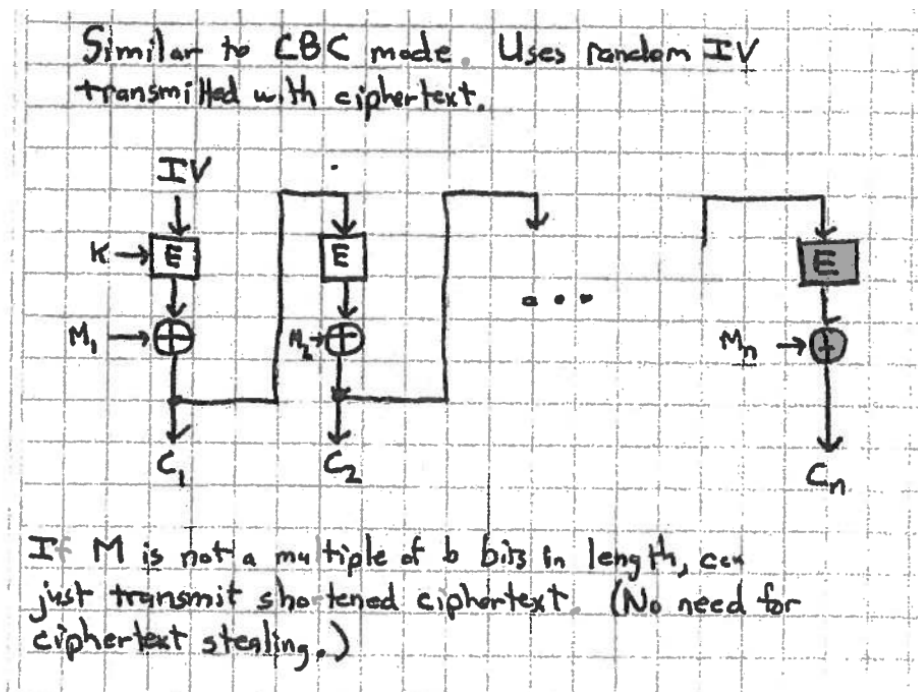 Similar to CBC mode. Uses random IV
transmitted with ciphertext.
IV
K E E E
M1 M2 Mn
C1 C2 Cn
If M is not a multiple of b bits in length, can
just transmit shortened ciphertext. (No need for
ciphertext stealing.)